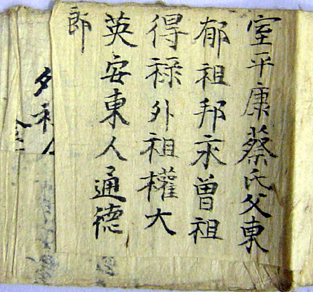 室平康蔡氏父東
郁祖邦宋曾祖
得祿外祖權大
英安東人通德
郎
外祖